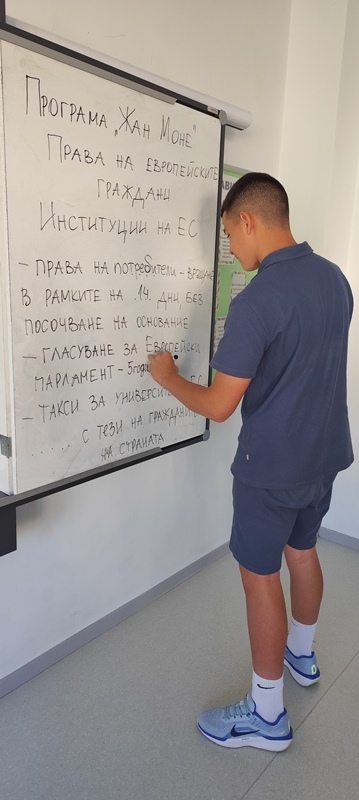 Програма „Жан Моне"
Права на европейските
граждани
Институции на ЕС
- права на потребители - връщане
в рамките на .14. дни, без
посочване на основание
- гласуване за Европейски
парламент - 5
- такси за ЕС
..... с тези на граждани
на страната